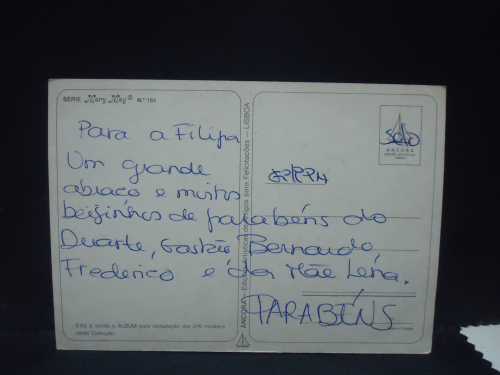 SERIE Mary May® N.º 164
Para a Filipa
Um grande
abraço e muitos
beijinhos de parabéns do
Duarte, Gastão Bernardo,
Frederico e da Mãe Lena.
PARABÉNS
Selo
ANCORA
LISBOA
ÂNCORA - Edições Artísticas de Artigos para Felicitações - LISBOA
Está à venda o ÁLBUM para colecção dos 216 modelos
desta Colecção.